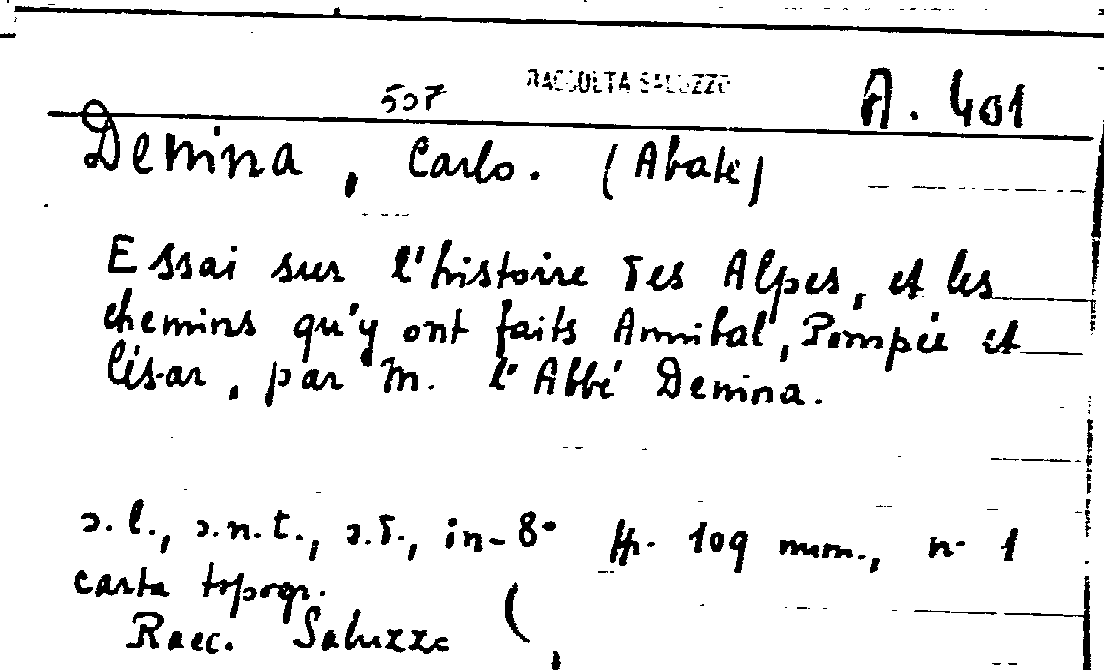 RACCOLTA SALUZZO
507 A. 401
Denina, Carlo. (Abate)
Essai sur l'histoire des Alpes, et les
chemins qu'y ont faits Annibal, Pompée et
César, par M. l'Abbé Denina.
s.l., s.n.t., s.d., in-8° pp. 109 num., n. 1
carta topogr.
Racc. Saluzzo (